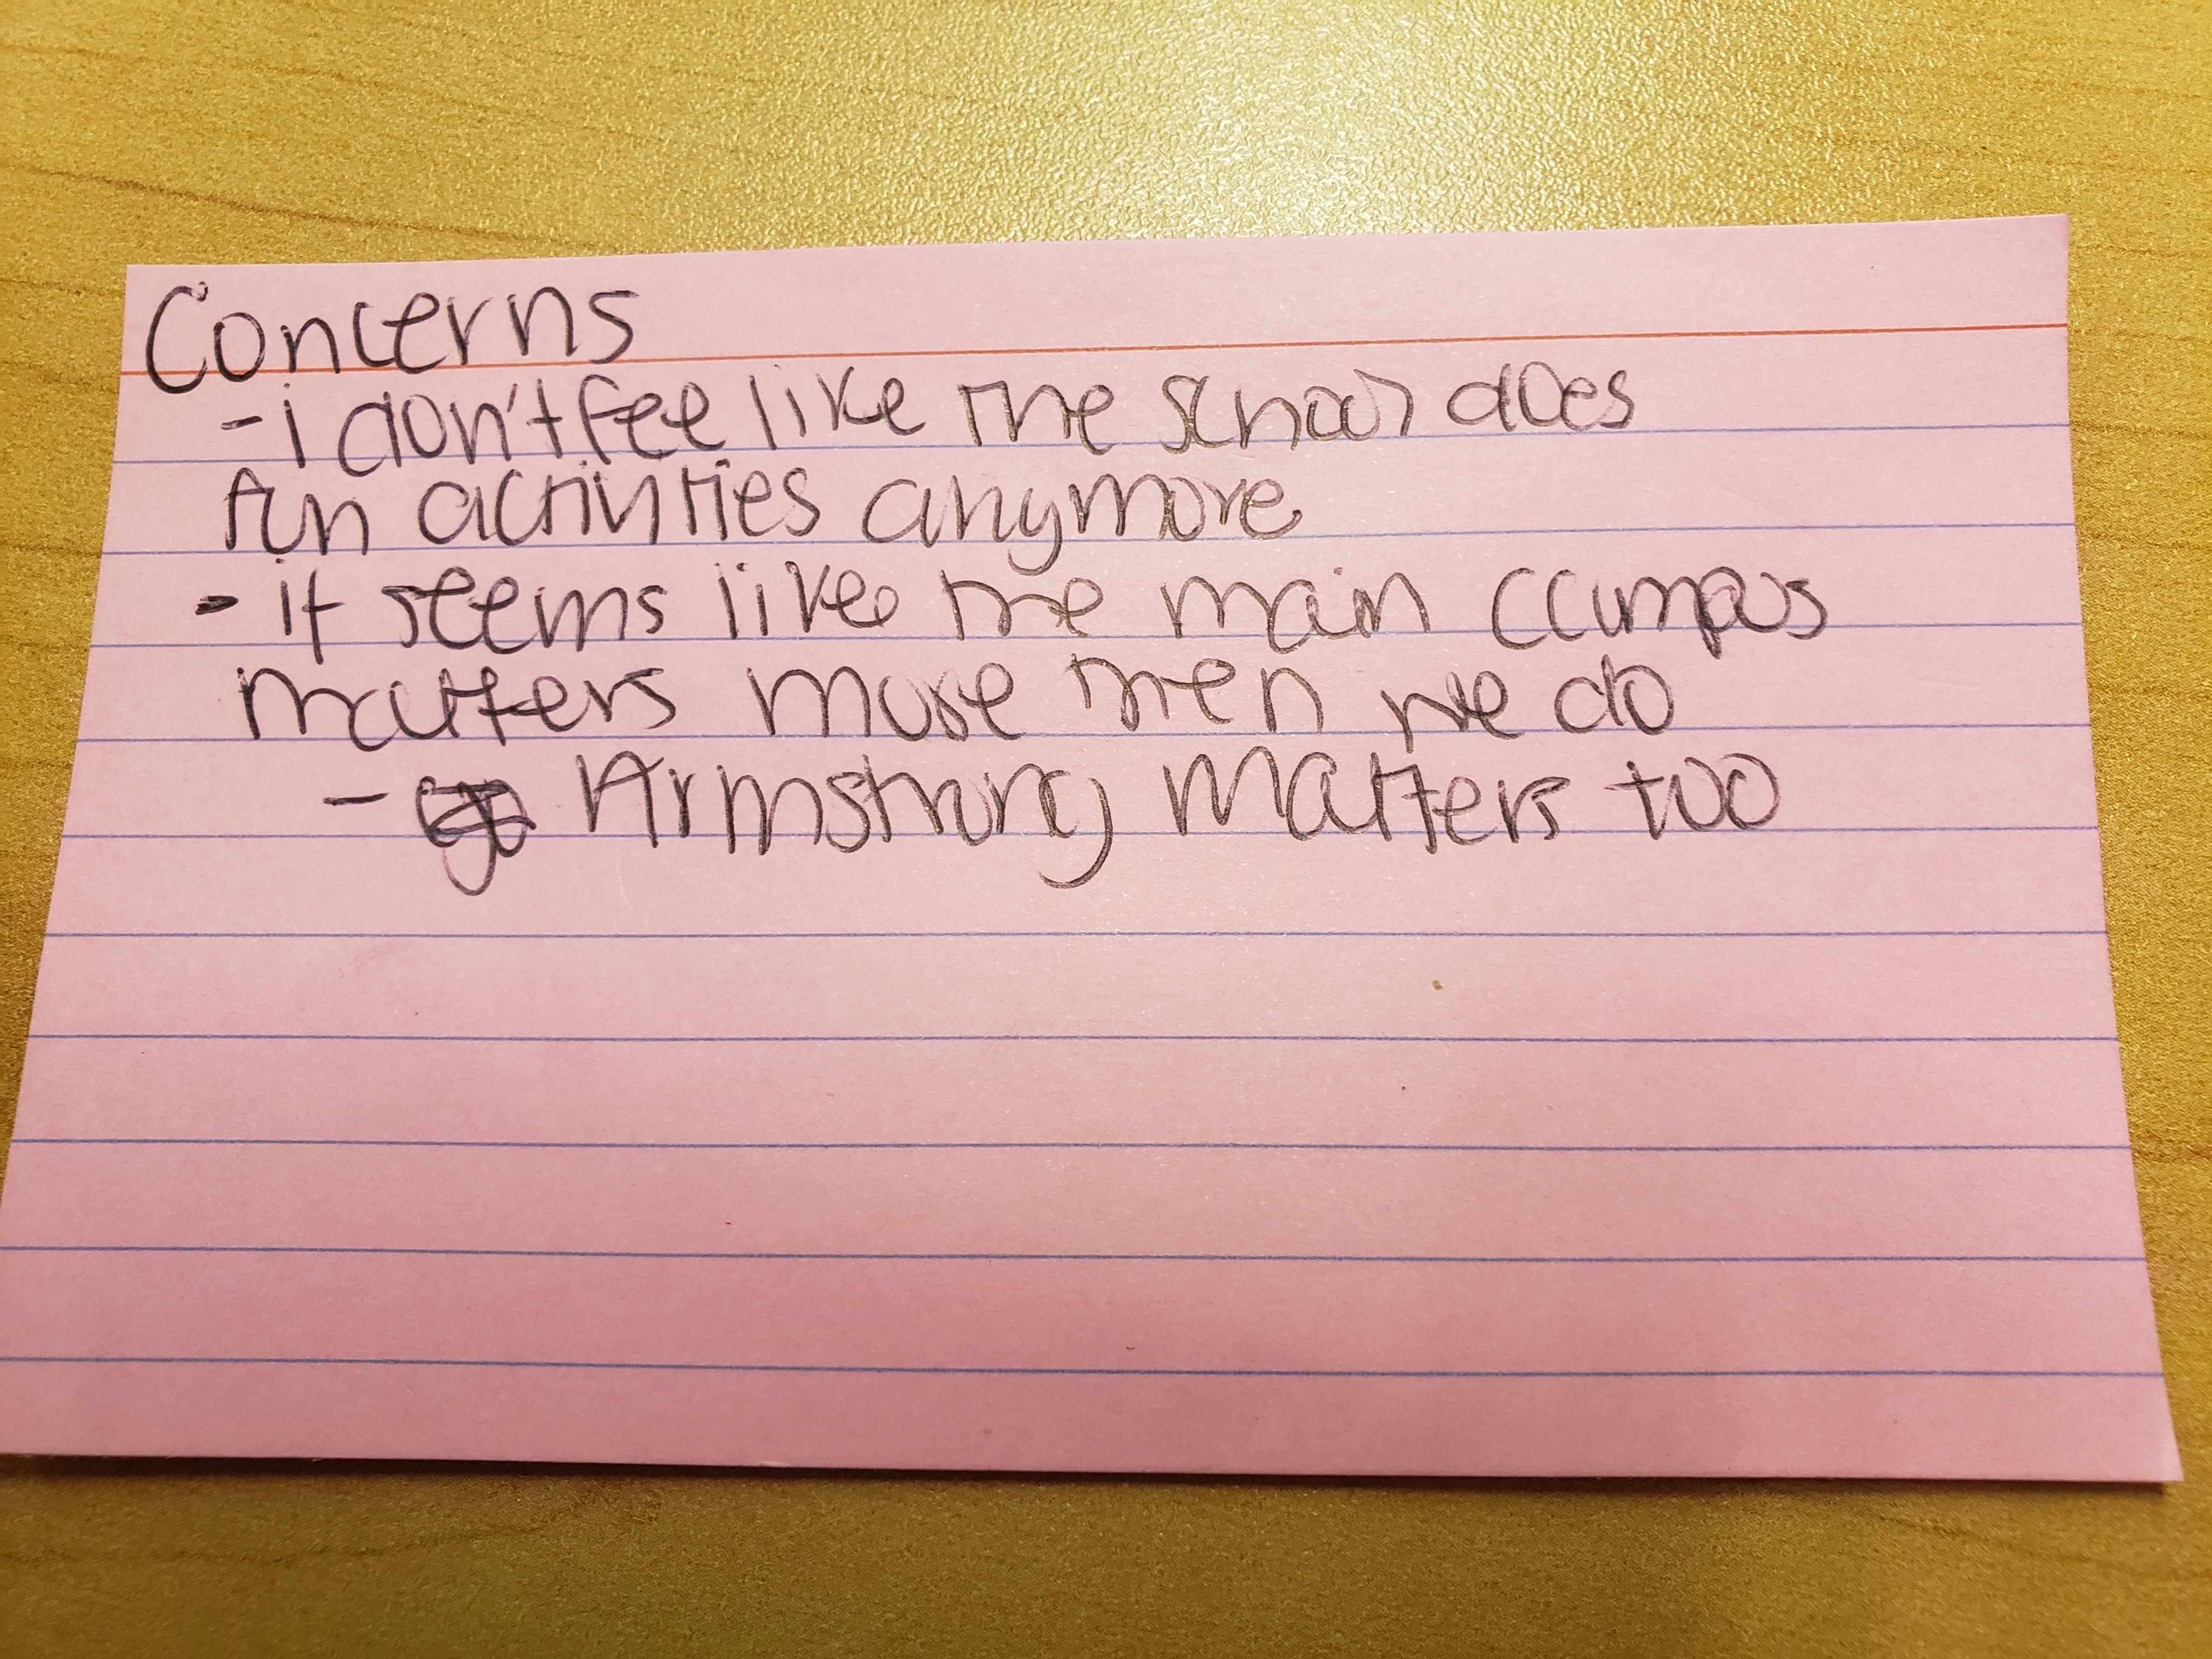 Concerns
- i don't feel like the school does
fun activities anymore
- it seems like the main campus
matters more then we do
- Armstrong matters too